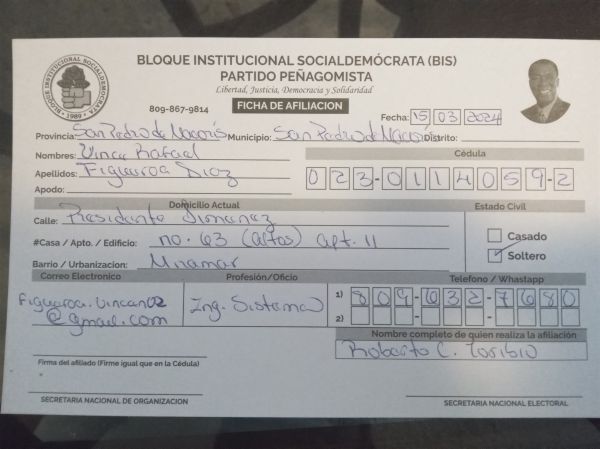 BLOQUE INSTITUCIONAL SOCIALDEMÓCRATA (BIS)
PARTIDO PEÑAGOMISTA
Libertad, Justicia, Democracia y Solidaridad
809-867-9814 FICHA DE AFILIACION
BLOQUE INSTITUCIONAL SOCIALDEMOCRATA • 1989 •
Fecha: 15 03 2024
Provincia: San Pedro de Macorís Municipio: San Pedro de Macorís Distrito:
Nombres: Vince Rafael
Cédula
Apellidos: Figueroa Diaz
023-0114059-2
Apodo:
Domicilio Actual Estado Civil
Calle: Presidente Jimenez
Casado
#Casa / Apto. / Edificio: no. 63 (altos) apt. 11
Soltero
Barrio / Urbanizacion: Miramar
Correo Electronico Profesión/Oficio Telefono / Whastapp
Figueroa.vincent02
@gmail.com
Ing. Sistema
1) 809-632-7680
2) - -
Nombre completo de quien realiza la afiliación
Roberto C. Toribio
Firma del afiliado (Firme igual que en la Cédula)
SECRETARIA NACIONAL DE ORGANIZACION SECRETARIA NACIONAL ELECTORAL